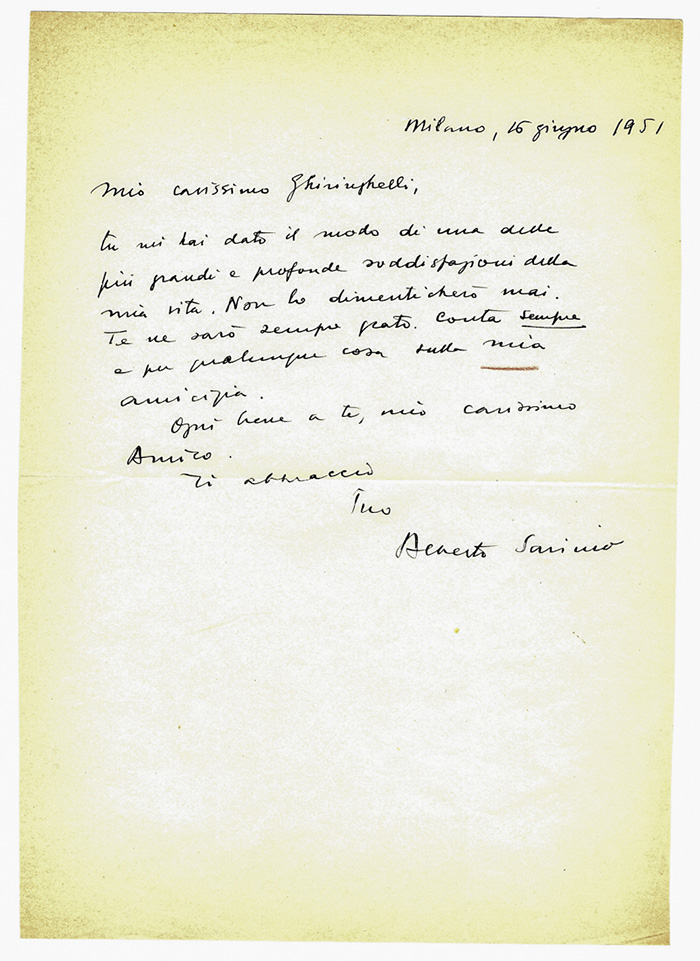 Milano, 16 giugno 1951
Mio carissimo Ghiringhelli,
tu mi hai dato il modo di una delle
più grandi e profonde soddisfazioni della
mia vita. Non lo dimenticherò mai.
Te ne sarò sempre grato. Conta sempre
e per qualunque cosa sulla mia
amicizia.
Ogni bene a te, mio carissimo
Amico.
Ti abbraccio
Tuo
Alberto Savinio